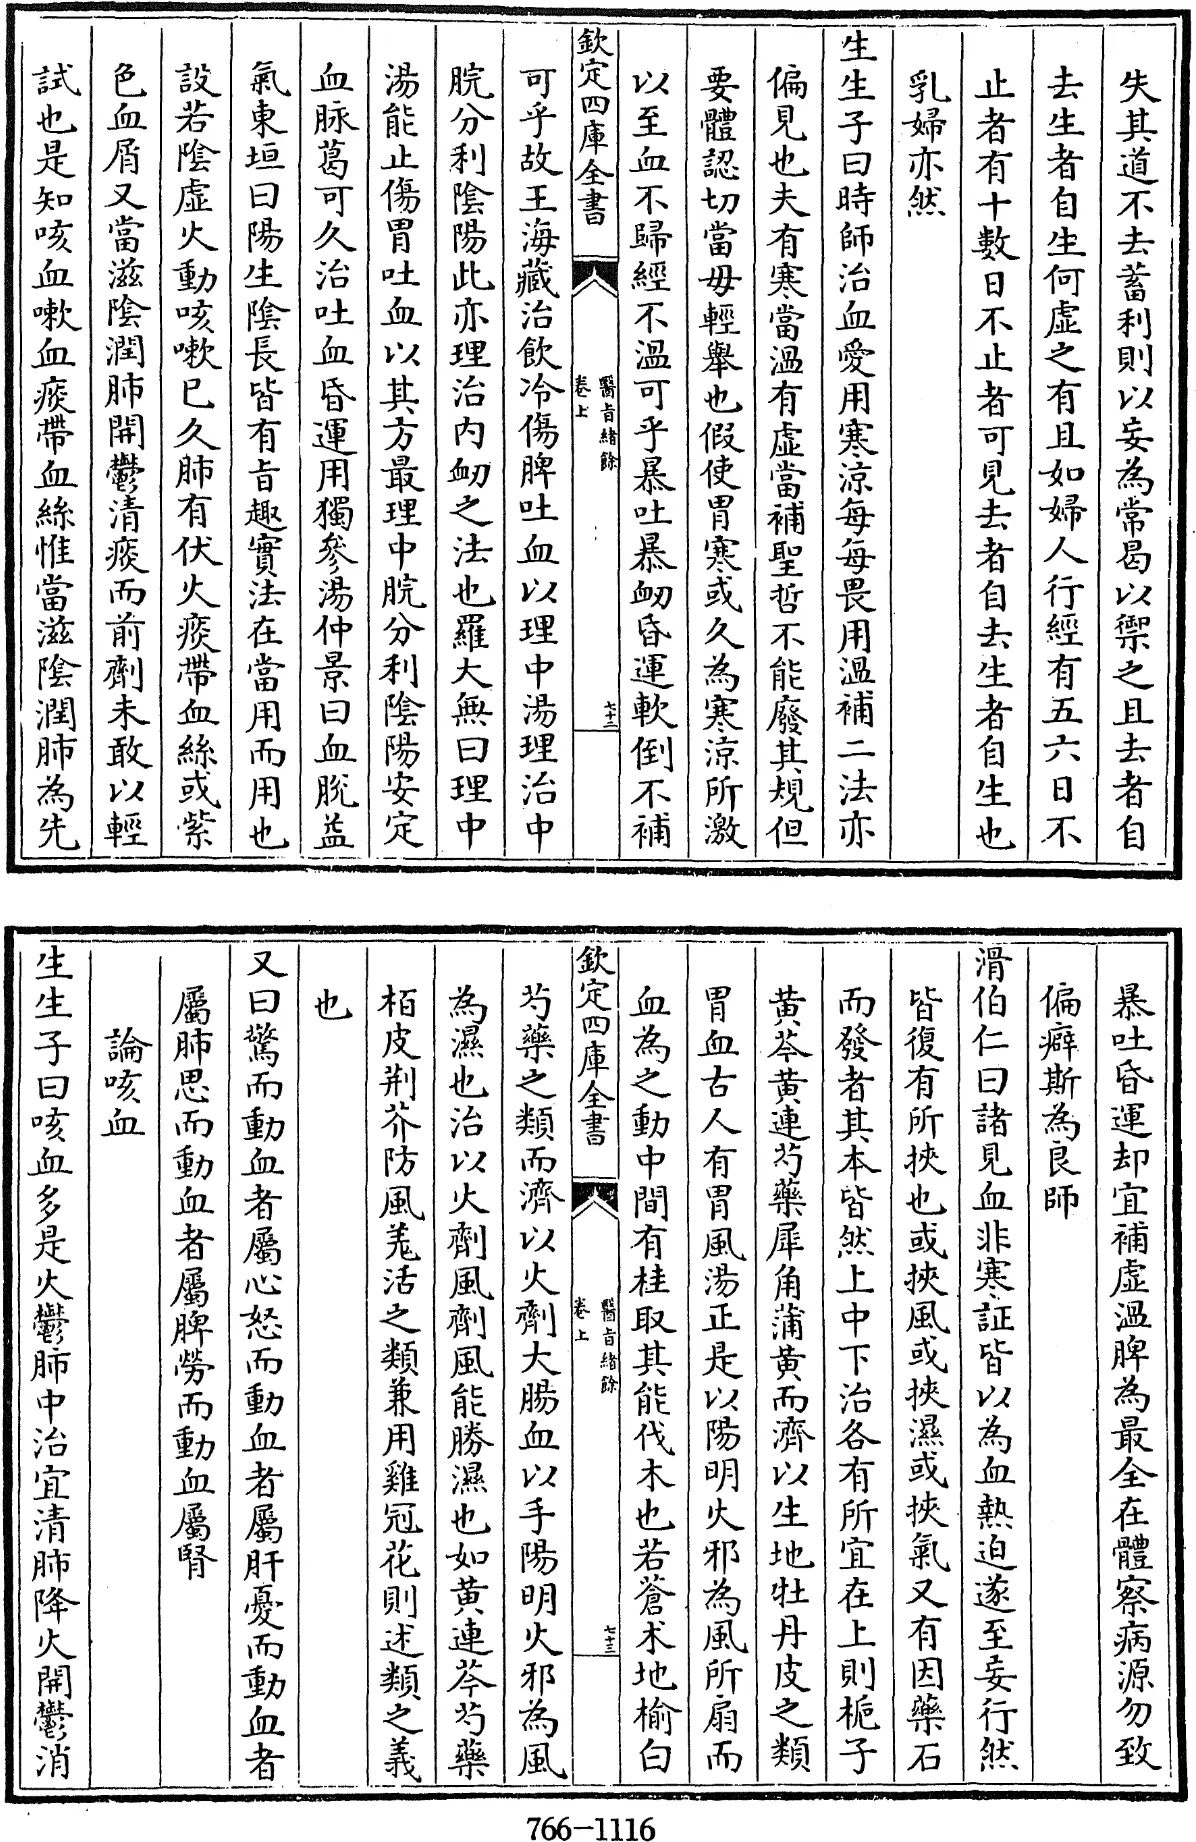 失其道不去蓄利則以妄為常曷以禦之且去者自
去生者自生何虛之有且如婦人行經有五六日不
止者有十數日不止者可見去者自去生者自生也
乳婦亦然
生生子曰時師治血愛用寒涼每每畏用溫補二法亦
偏見也夫有寒當溫有虛當補聖哲不能廢其規但
要體認切當毋輕舉也假使胃寒或久為寒涼所激
以至血不歸經不溫可乎暴吐暴衂昏運軟倒不補
欽定四庫全書
醫旨緒餘
卷上
七十二
可乎故王海藏治飲冷傷脾吐血以理中湯理治中
脘分利陰陽此亦理治內衂之法也羅大無曰理中
湯能止傷胃吐血以其方最理中脘分利陰陽安定
血脉葛可久治吐血昏運用獨參湯仲景曰血脫益
氣東垣曰陽生陰長皆有旨趣實法在當用而用也
設若陰虛火動咳嗽已久肺有伏火痰帶血絲或紫
色血屑又當滋陰潤肺開鬱清痰而前劑未敢以輕
試也是知咳血嗽血痰帶血絲惟當滋陰潤肺為先
暴吐昏運却宜補虛溫脾為最全在體察病源勿致
偏癖斯為良師
滑伯仁曰諸見血非寒証皆以為血熱迫遂至妄行然
皆復有所挾也或挾風或挾濕或挾氣又有因藥石
而發者其本皆然上中下治各有所宜在上則梔子
黄芩黄連芍藥犀角蒲黄而濟以生地牡丹皮之類
胃血古人有胃風湯正是以陽明火邪為風所扇而
血為之動中間有桂取其能伐木也若蒼术地榆白
欽定四庫全書
醫旨緒餘
卷上
七十三
芍藥之類而濟以火劑大腸血以手陽明火邪為風
為濕也治以火劑風劑風能勝濕也如黄連芩芍藥
栢皮荆芥防風羗活之類兼用雞冠花則述類之義
也
又曰驚而動血者屬心怒而動血者屬肝憂而動血者
屬肺思而動血者屬脾勞而動血屬腎
論咳血
生生子曰咳血多是火鬱肺中治宜清肺降火開鬱消
766-1116